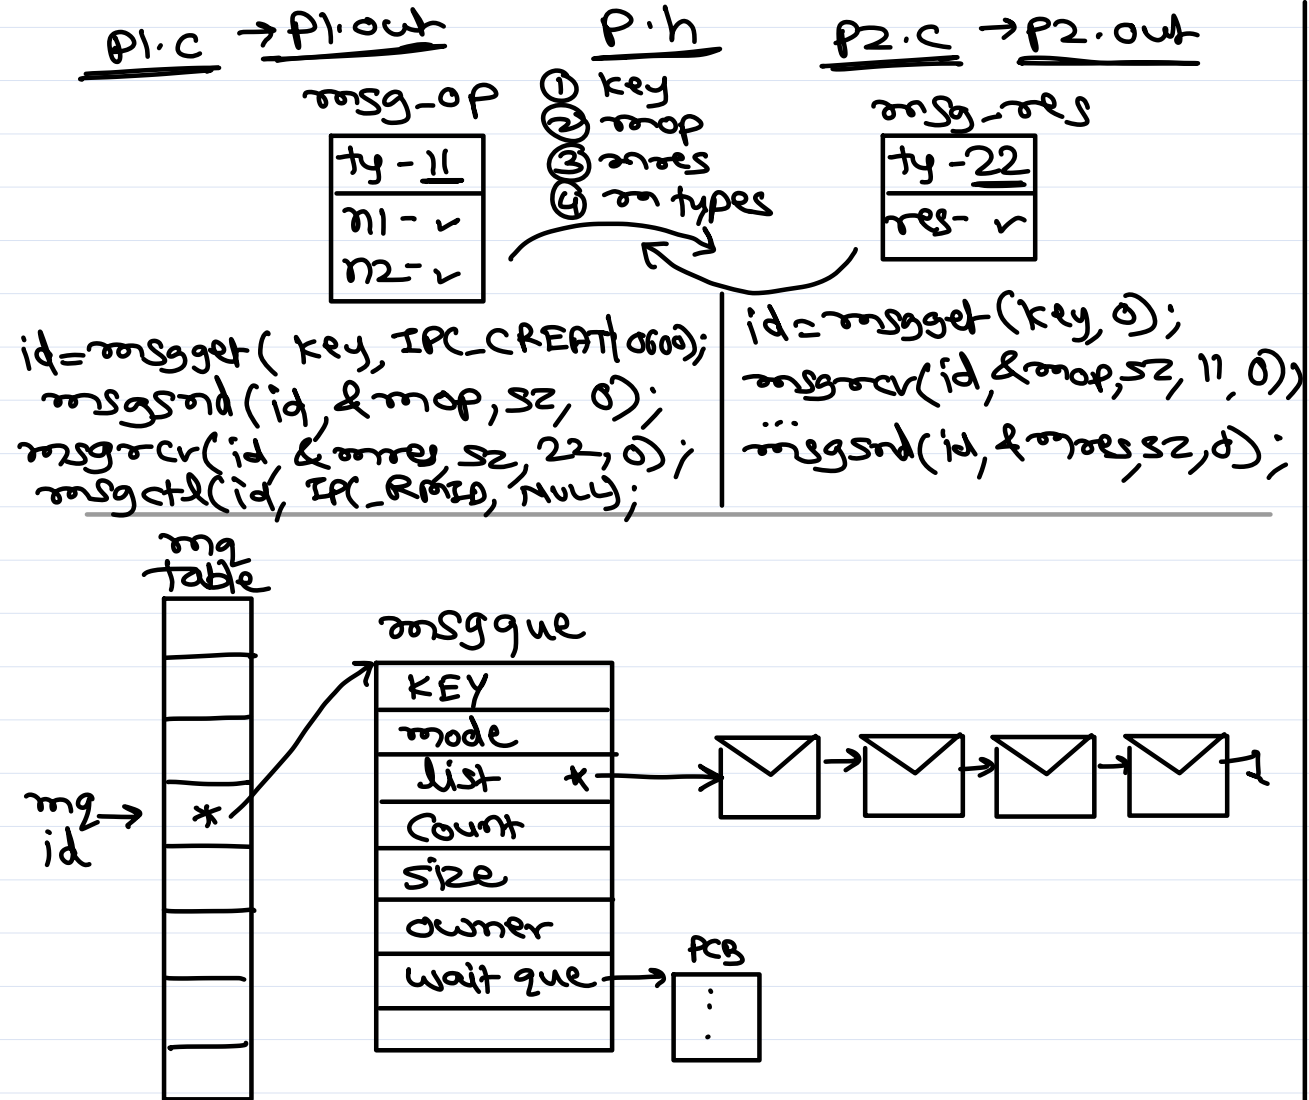 p1.c → p1.out
p.h
p2.c → p2.out
msg_op
ty - 11
n1 - ✓
n2 - ✓
① key
② mop
③ mres
④ m types
msg_res
ty - 22
res - ✓
id=msgget( key, IPC_CREAT|0600);
msgsnd(id, &mop, sz, 0);
msgrcv(id, &mres, sz, 22, 0);
msgctl(id, IPC_RMID, NULL);
id=msgget(key, 0);
msgrcv(id, &mop, sz, 11, 0);
...
msgsnd(id, &mres, sz, 0);
mq
table
mq
id
*
msgque
KEY
mode
list *
count
size
owner
wait que
PCB